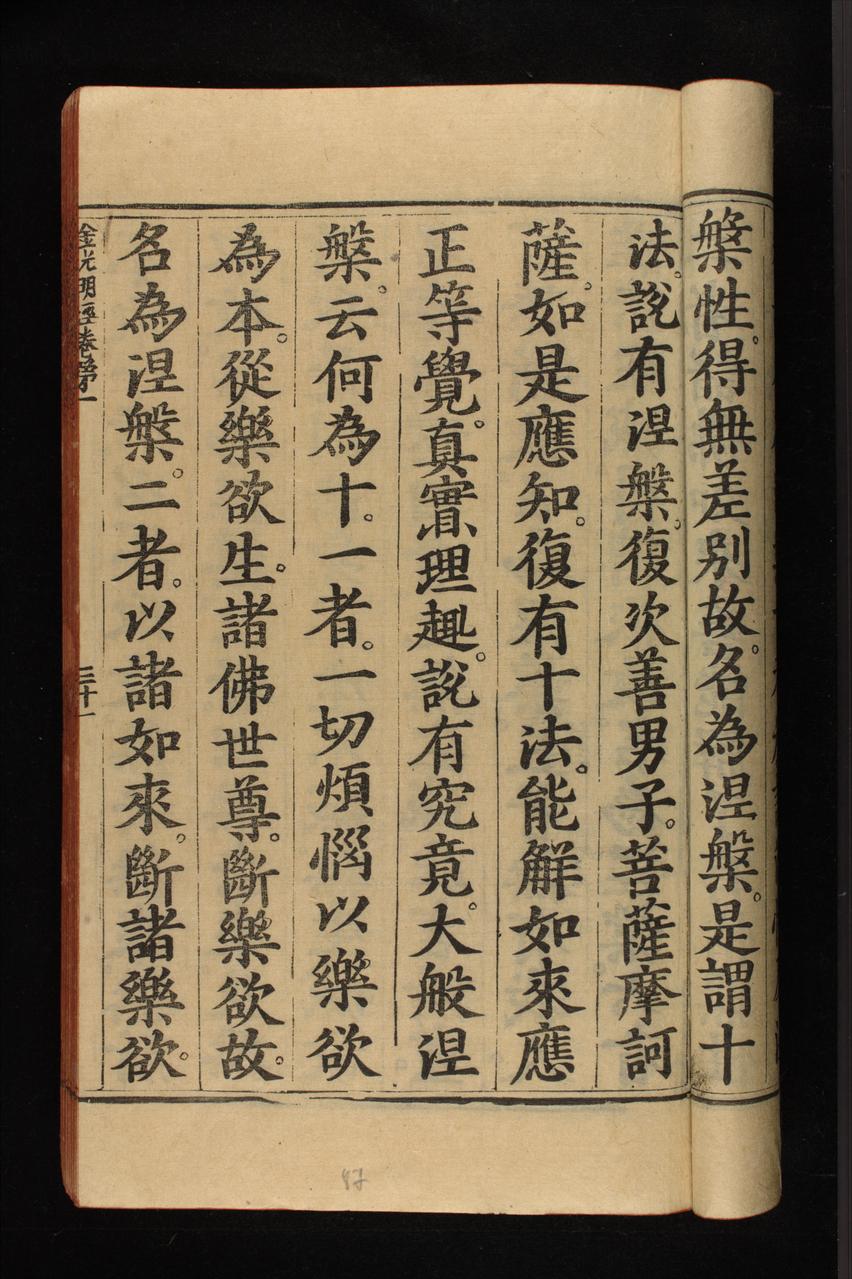 槃性。得無差別故。名為涅槃。是謂十
法。說有涅槃。復次善男子。菩薩摩訶
薩。如是應知。復有十法。能解如來應
正等覺。真實理趣。說有究竟。大般涅
槃。云何為十。一者。一切煩惱以樂欲
為本。從樂欲生。諸佛世尊。斷樂欲故。
名為涅槃。二者。以諸如來。斷諸樂欲。
金光明經卷第一
三十一
87